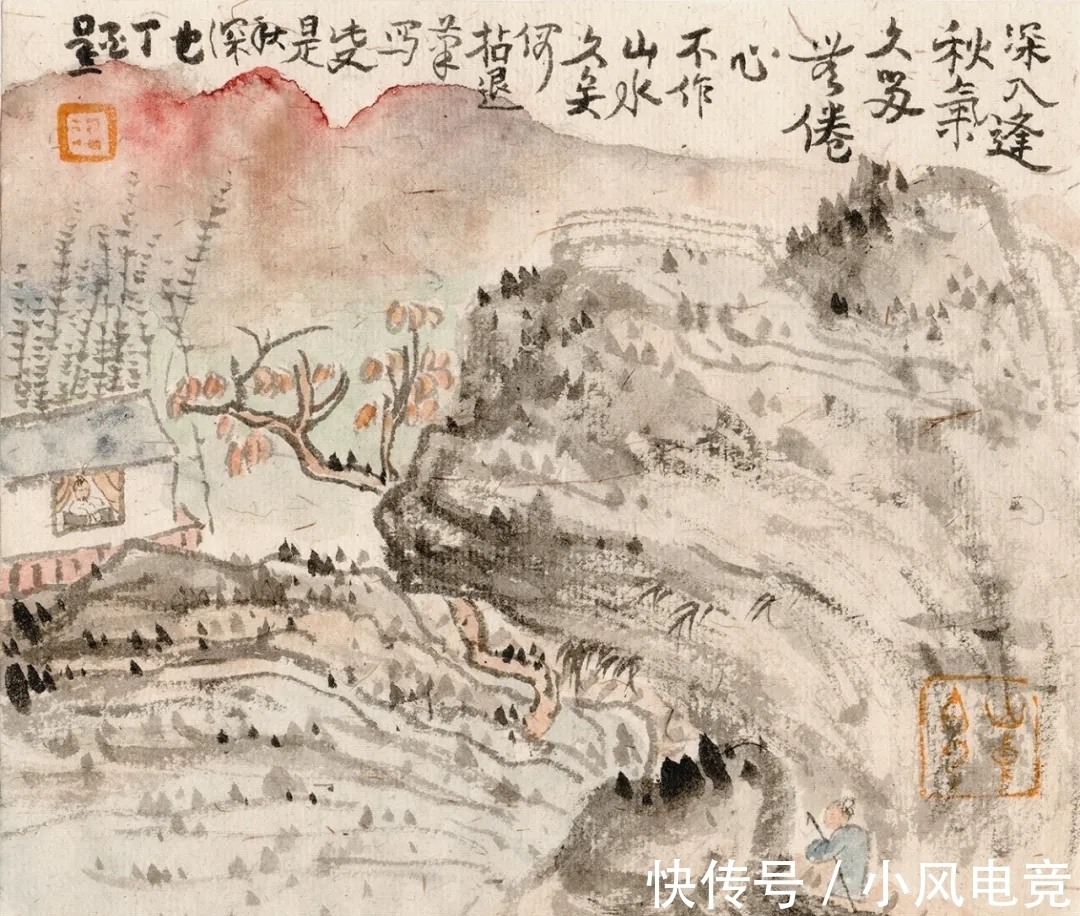 深入逢
秋氣
久
倦
心
不作
山水
久矣
何
拈退
筆
写
是
秋
深
也
丁
快传号 / 小风电竞